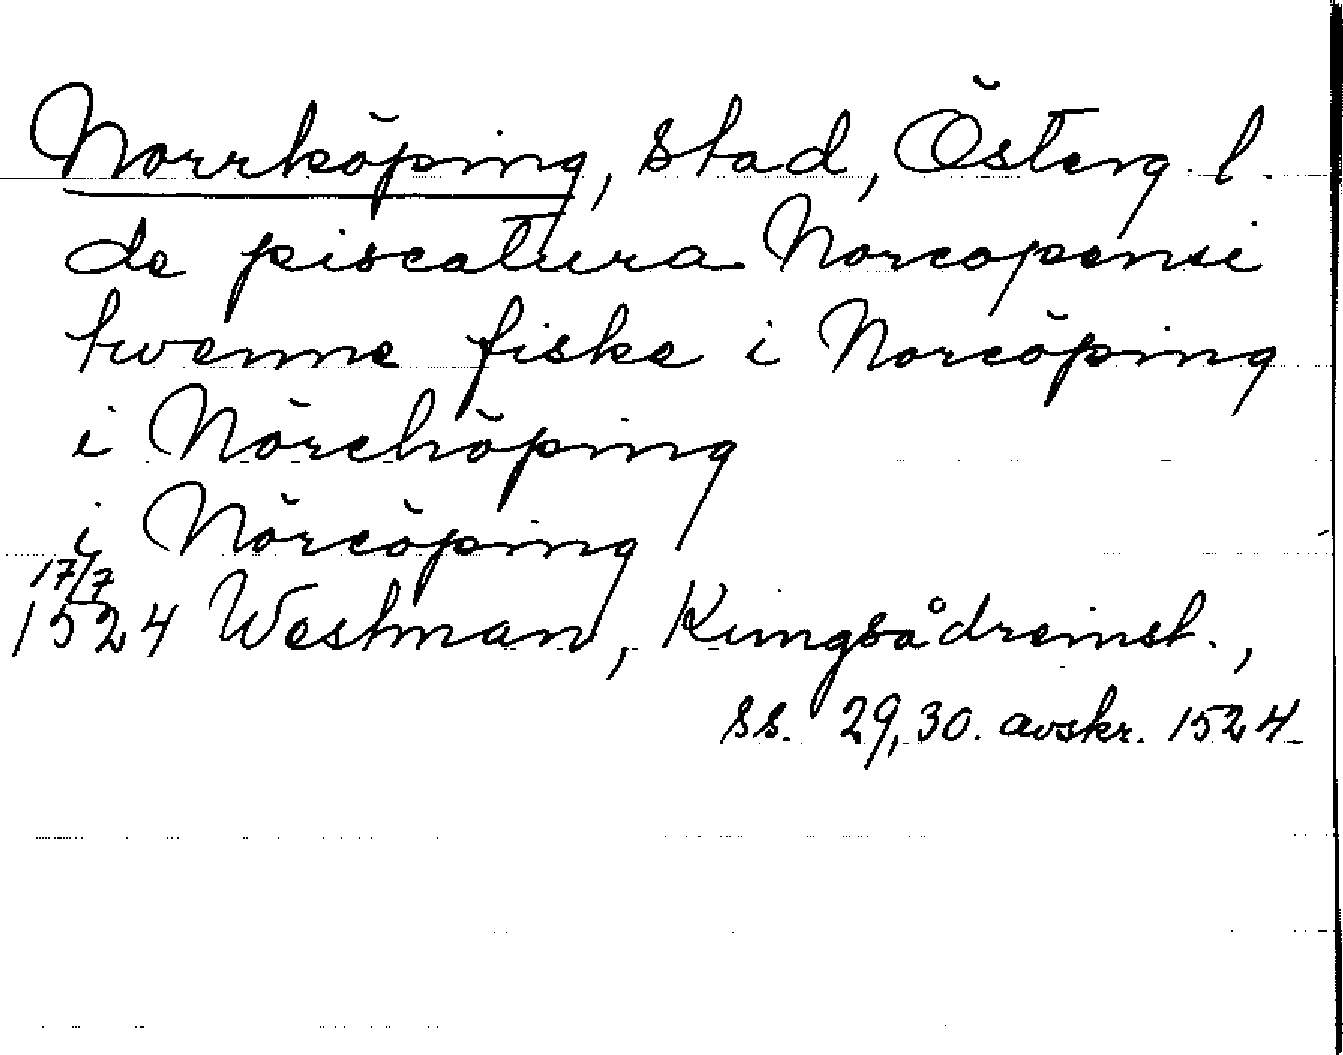 Norrköping, stad, Österg. l.
de piscatura Norcopensi
twenne fiske i Norcöping
i Nörchöping
i Nörcöping
17/7
1524 Westman, Kungsådreinst.,
ss. 29, 30. avskr. 1524